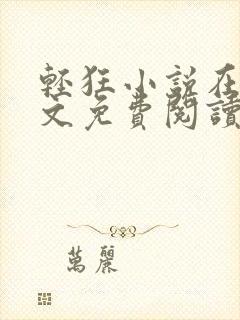 輕狂小說在
文免費閱讀
萬麗